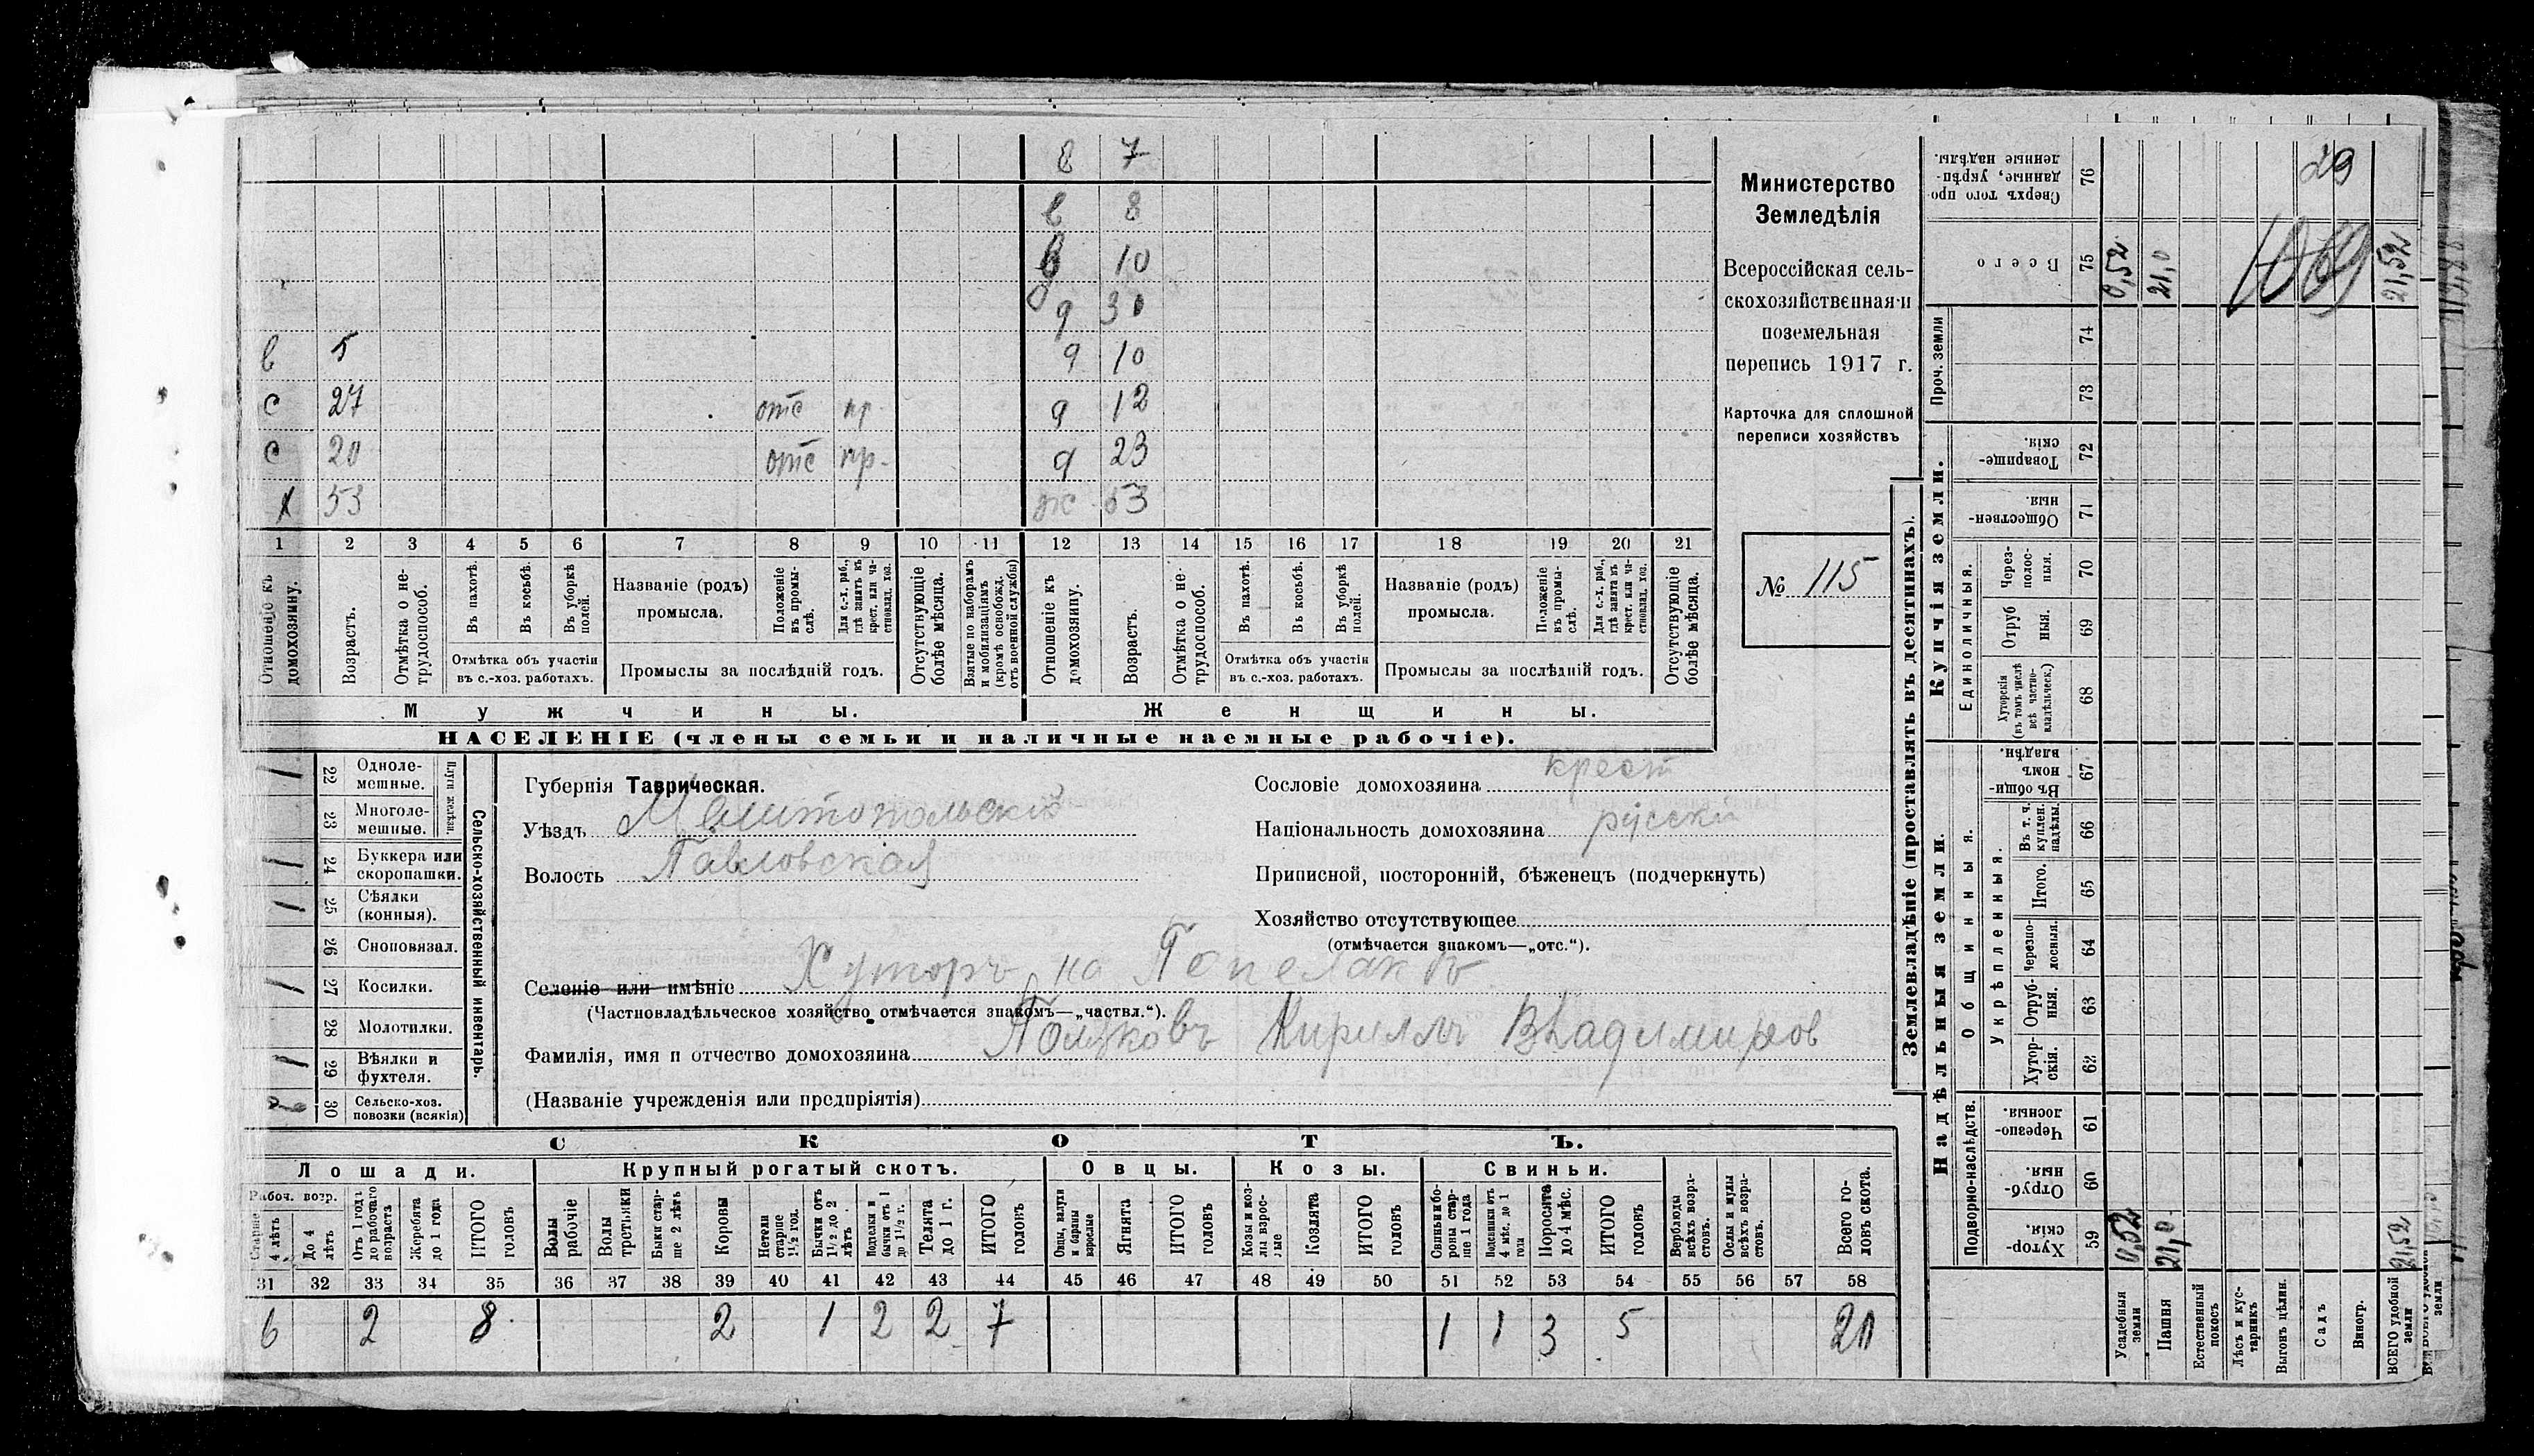 в 7
в 8
в 10
д 30
в 5 д 10
с 27 отс пр. д 12
с 20 отс пр. д 23
х 53 ж 53
1 2 3 4 5 6 7 8 9 10 11 12 13 14 15 16 17 18 19 20 21
Отношеніе къ домохозяину.
Возрастъ.
Отмѣтка о не-трудоспособ.
Въ пахотѣ.
Въ косьбѣ.
Въ уборкѣ полей.
Отмѣтка объ участіи въ с.-хоз. работахъ.
Названіе (родъ) промысла.
Положеніе въ промы-слѣ.
Для с.-х. раб., гдѣ занятъ въ крест. или ча-стновлад. хоз.
Промыслы за послѣдній годъ.
Отсутствующіе болѣе мѣсяца.
Взятые по наборамъ и мобилизаціямъ (кромѣ освобожд. отъ военной службы)
Отношеніе къ домохозяину.
Возрастъ.
Отмѣтка о не-трудоспособ.
Въ пахотѣ.
Въ косьбѣ.
Въ уборкѣ полей.
Отмѣтка объ участіи въ с.-хоз. работахъ.
Названіе (родъ) промысла.
Положеніе въ промы-слѣ.
Для с.-х. раб., гдѣ занятъ въ крест. или ча-стновлад. хоз.
Промыслы за послѣдній годъ.
Отсутствующіе болѣе мѣсяца.
Мужчины.
Женщины.
НАСЕЛЕНІЕ (члены семьи и наличные наемные рабочіе).
Министерство
Земледѣлія
Всероссійская сель-
скохозяйственная и
поземельная
перепись 1917 г.
Карточка для сплошной
переписи хозяйствъ
№ 115
Сельско-хозяйственный инвентарь.
Плуги желѣзн.
1 22 Одноле-мешные.
23 Многоле-мешные.
1 24 Буккера или скоропашки.
1 25 Сѣялки (конныя).
26 Сноповязал.
1 27 Косилки.
28 Молотилки.
1 29 Вѣялки и фухтеля.
2 30 Сельско-хоз. повозки (всякія)
Губернія Таврическая.
Уѣздъ Мелитопольскій
Волость Павловская
Сословіе домохозяина крест
Національность домохозяина русскій
Приписной, посторонній, бѣженецъ (подчеркнуть)
Хозяйство отсутствующее
(отмѣчается знакомъ—„отс.“).
Селеніе или имѣніе Хуторъ на
(Частновладѣльческое хозяйство отмѣчается знакомъ—„частвл.“).
Фамилія, имя и отчество домохозяина Кириллъ Владимиров
(Названіе учрежденія или предпріятія)
СКОТЪ.
Лошади. Крупный рогатый скотъ. Овцы. Козы. Свиньи.
Рабоч. возр.
Старше 4 лѣтъ
До 4 лѣтъ
Отъ 1 годъ до рабочаго возраста
Жеребята до 1 года
ИТОГО головъ
Волы рабочіе
Волы третьяки
Быки стар-ше 2 лѣтъ
Коровы
Нетели старше 1½ год.
Бычки отъ 1½ до 2 лѣтъ
Подтелки и бычки отъ 1 до 1½ г.
Телята до 1 г.
ИТОГО головъ
Овцы, валухи и бараны взрослые
Ягнята
ИТОГО головъ
Козы и коз-лы взрос-лые
Козлята
ИТОГО головъ
Свиньи бо-ровы стар-ше 1 года
Подсвинки отъ 4 мѣс. до 1 года
Поросята до 4 мѣс.
ИТОГО головъ
Верблюды всѣхъ возра-стовъ.
Ослы и мулы всѣхъ возра-стовъ.
Всего го-ловъ скота.
31 32 33 34 35 36 37 38 39 40 41 42 43 44 45 46 47 48 49 50 51 52 53 54 55 56 57 58
6 2 8 2 1 2 2 7 1 1 3 5 20
Землевладѣніе (проставлять въ десятинахъ).
Сверхъ того про данные, укрѣп-ленные надѣлы. 76 29
Всего 75 0,52 21,0 21,52
Проч. земли 74
73
Купчія земли.
Товарище-скія. 72
Обществен-ныя. 71
Единоличныя.
Через-полос-ныя. 70
Отруб ныя. 69
Хуторскія (въ томъ числѣ всѣ частно-владѣльческ.) 68
Надѣльныя земли.
Въ общи-номъ владѣн. 67
Общинныя.
Укрѣпленныя.
Въ т. ч. куплен. надѣлы. 66
Итого. 65
Черезпо-лосныя. 64
Отруб-ныя. 63
Хутор-скія. 62
Подворно-наслѣдств.
Черезпо-лосныя. 61
Отруб-ныя. 60
Хутор-скія. 59 0,52 21,0 21,52
Усадебныя земли
Пашня
Естественный покосъ
Лѣсъ и кус-тарникъ
Выгонъ цѣлин.
Садъ
Виногр.
ВСЕГО удобной земли